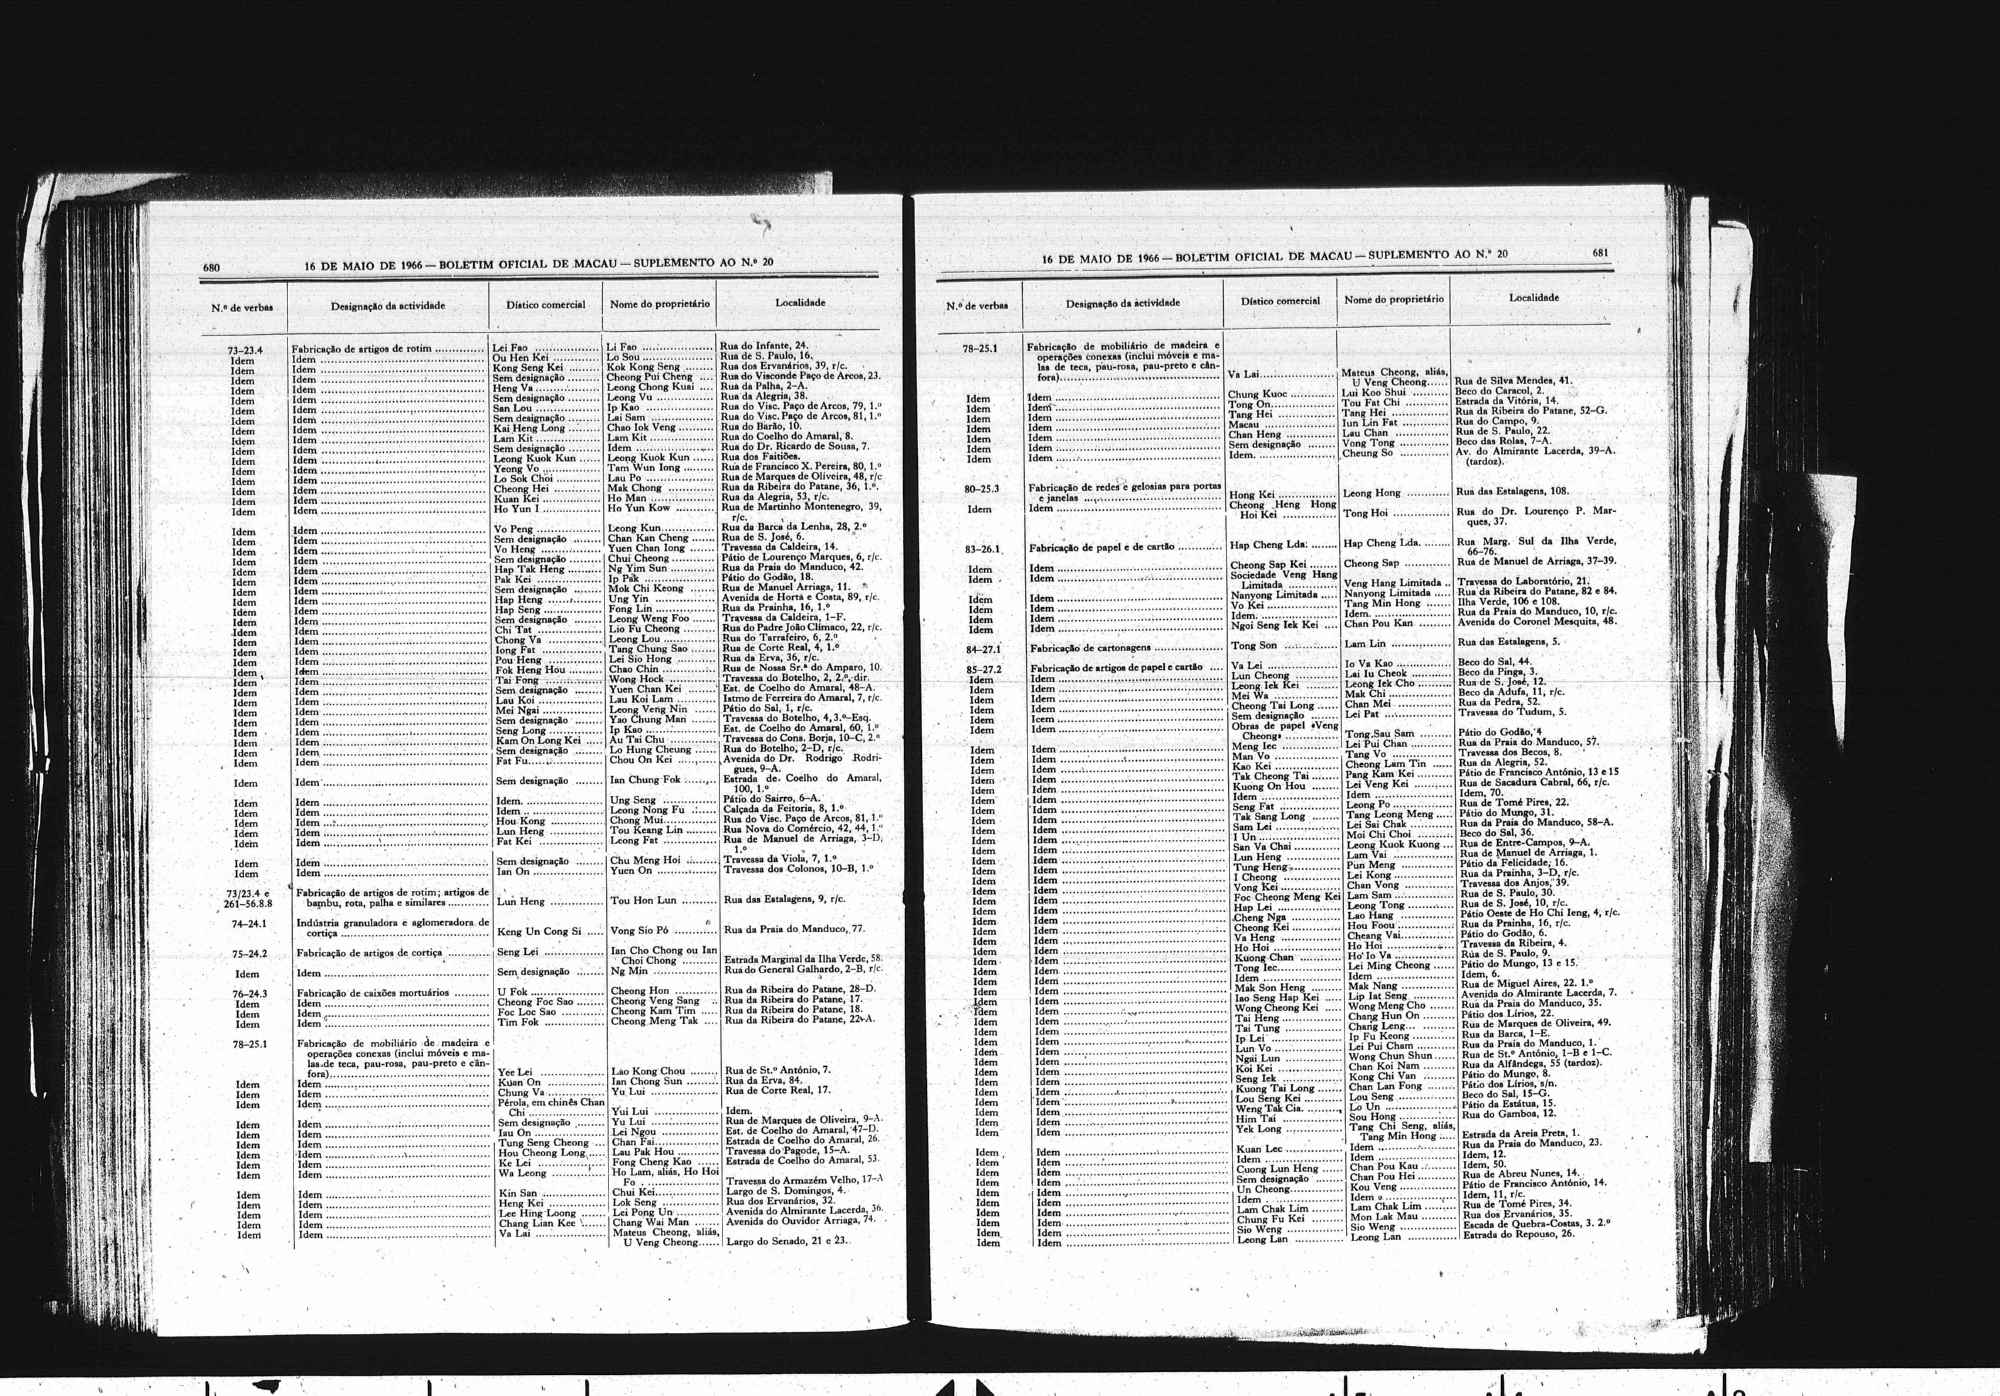 680 16 DE MAIO DE 1966 — BOLETIM OFICIAL DE MACAU — SUPLEMENTO AO N.º 20
N.º de verbas Designação da actividade Dístico comercial Nome do proprietário Localidade
73–23.4 Fabricação de artigos de rotim Lei Fao Li Fao Rua do Infante, 24.
Idem Idem Ou Hen Kei Lo Sou Rua de S. Paulo, 16.
Idem Idem Kong Seng Kei Kok Kong Seng Rua dos Ervanários, 39, r/c.
Idem Idem Sem designação Cheong Pui Cheng Rua do Visconde Paço de Arcos, 23.
Idem Idem Heng Va Leong Chong Kuai Rua da Palha, 2–A.
Idem Idem Sem designação Leong Vu Rua da Alegria, 38.
Idem Idem San Lou Ip Kao Rua do Visc. Paço de Arcos, 79, 1.º
Idem Idem Sem designação Lai Sam Rua do Visc. Paço de Arcos, 81, 1.º
Idem Idem Kai Heng Long Chao Iok Veng Rua do Barão, 10.
Idem Idem Lam Kit Lam Kit Rua do Coelho do Amaral, 8.
Idem Idem Sem designação Idem Rua do Dr. Ricardo de Sousa, 7.
Idem Idem Leong Kuok Kun Leong Kuok Kun Rua dos Faitiões.
Idem Idem Yeong Vo Tam Wun Iong Rua de Francisco X. Pereira, 80, 1.º
Idem Idem Lo Sok Choi Lau Po Rua de Marques de Oliveira, 48, r/c
Idem Idem Cheong Hei Mak Chong Rua da Ribeira do Patane, 36, 1.º.
Idem Idem Kuan Kei Ho Man Rua da Alegria, 53, r/c.
Idem Idem Ho Yun I Ho Yun Kow Rua de Martinho Montenegro, 39,
r/c.
Idem Idem Vo Peng Leong Kun Rua da Barca da Lenha, 28, 2.º
Idem Idem Sem designação Chan Kan Cheng Rua de S. José, 6.
Idem Idem Vo Heng Yuen Chan Iong Travessa da Caldeira, 14.
Idem Idem Sem designação Chui Cheong Pátio de Lourenço Marques, 6, r/c.
Idem Idem Hap Tak Heng Ng Yim Sun Rua da Praia do Manduco, 42.
Idem Idem Pak Kei Ip Pak Pátio do Godão, 18.
Idem Idem Sem designação Mok Chi Keong Rua de Manuel Arriaga, 11.
Idem Idem Hap Heng Ung Yin Avenida de Horta e Costa, 89, r/c.
Idem Idem Hap Seng Fong Lin Rua da Prainha, 16, 1.º
Idem Idem Sem designação Leong Weng Foo Travessa da Caldeira, 1–F.
Idem Idem Chi Tat Lio Fu Cheong Rua do Padre João Clímaco, 22, r/c.
Idem Idem Chong Va Leong Lou Rua do Tarrafeiro, 6, 2.º
Idem Idem Iong Fat Tang Chung Sao Rua de Corte Real, 4, 1.º
Idem Idem Pou Heng Lei Sio Hong Rua da Erva, 36, r/c.
Idem Idem Fok Heng Hou Chao Chin Rua de Nossa Sr.ª do Amparo, 10.
Idem Idem Tai Fong Wong Hock Travessa do Botelho, 2, 2.º, dir.
Idem Idem Sem designação Yuen Chan Kei Est. de Coelho do Amaral, 48–A.
Idem Idem Lau Koi Lau Koi Lam Istmo de Ferreira do Amaral, 7, r/c.
Idem Idem Mei Ngai Leong Veng Nin Pátio do Sal, 1, r/c.
Idem Idem Sem designação Yao Chung Man Travessa do Botelho, 4, 3.º–Esq.
Idem Idem Seng Long Ip Kao Est. de Coelho do Amaral, 60, 1.º
Idem Idem Kam On Long Kei Au Tai Chu Travessa do Cons. Borja, 10–C, 2.º
Idem Idem Sem designação Lo Hung Cheung Rua do Botelho, 2–D, r/c.
Idem Idem Fat Fu Chou On Kei Avenida do Dr. Rodrigo Rodri-
gues, 9–A.
Idem Idem Sem designação Ian Chung Fok Estrada de Coelho do Amaral,
100, 1.º
Idem Idem Idem. Ung Seng Pátio do Sairro, 6–A.
Idem Idem Idem Leong Nong Fu Calçada da Feitoria, 8, 1.º
Idem Idem Hou Kong Chong Mui Rua do Visc. Paço de Arcos, 81, 1.º
Idem Idem Lun Heng Tou Keang Lin Rua Nova do Comércio, 42, 44, 1.º
Idem Idem Fat Kei Leong Fat Rua de Manuel de Arriaga, 3–D,
1.º
Idem Idem Sem designação Chu Meng Hoi Travessa da Viola, 7, 1.º
Idem Idem Ian On Yuen On Travessa dos Colonos, 10–B, 1.º
73/23.4 e Fabricação de artigos de rotim; artigos de
261–56.8.8 bambu, rota, palha e similares Lun Heng Tou Hon Lun Rua das Estalagens, 9, r/c.
74–24.1 Indústria granuladora e aglomeradora de
cortiça Keng Un Cong Si Vong Sio Pó Rua da Praia do Manduco, 77.
75–24.2 Fabricação de artigos de cortiça Seng Lei Ian Cho Chong ou Ian
Choi Chong Estrada Marginal da Ilha Verde, 58.
Idem Idem Sem designação Ng Min Rua do General Galhardo, 2–B, r/c.
76–24.3 Fabricação de caixões mortuários U Fok Cheong Hon Rua da Ribeira do Patane, 28–D.
Idem Idem Cheong Foc Sao Cheong Veng Sang Rua da Ribeira do Patane, 17.
Idem Idem Foc Loc Sao Cheong Kam Tim Rua da Ribeira do Patane, 18.
Idem Idem Tim Fok Cheong Meng Tak Rua da Ribeira do Patane, 22–A.
78–25.1 Fabricação de mobiliário de madeira e
operações conexas (inclui móveis e ma-
las de teca, pau-rosa, pau-preto e cân-
fora) Yee Lei Lao Kong Chou Rua de St.º António, 7.
Idem Idem Kuan On Ian Chong Sun Rua da Erva, 84.
Idem Idem Chung Va Yu Lui Rua de Corte Real, 17.
Idem Idem Pérola, em chinês Chan
Chi Yui Lui Idem.
Idem Idem Sem designação Yu Lui Rua de Marques de Oliveira, 9–A.
Idem Idem Iau On Lei Ngou Est. de Coelho do Amaral, 47–D.
Idem Idem Tung Seng Cheong Chan Fai Estrada de Coelho do Amaral, 26.
Idem Idem Hou Cheong Long Lau Pak Hou Travessa do Pagode, 15–A.
Idem Idem Ke Lei Fong Cheng Kao Estrada de Coelho do Amaral, 53.
Idem Idem Wa Leong Ho Lam, aliás, Ho Hoi
Fo Travessa do Armazém Velho, 17–A
Idem Idem Kin San Chui Kei Largo de S. Domingos, 4.
Idem Idem Heng Kei Lok Seng Rua dos Ervanários, 32.
Idem Idem Lee Hing Loong Lei Pong Un Avenida do Almirante Lacerda, 36.
Idem Idem Chang Lian Kee Chang Wai Man Avenida do Ouvidor Arriaga, 74.
Idem Idem Va Lai Mateus Cheong, aliás,
U Veng Cheong Largo do Senado, 21 e 23.
16 DE MAIO DE 1966 — BOLETIM OFICIAL DE MACAU — SUPLEMENTO AO N.º 20 681
N.º de verbas Designação da actividade Dístico comercial Nome do proprietário Localidade
78–25.1 Fabricação de mobiliário de madeira e
operações conexas (inclui móveis e ma-
las de teca, pau-rosa, pau-preto e cân-
fora) Va Lai Mateus Cheong, aliás,
U Veng Cheong Rua de Silva Mendes, 41.
Idem Idem Chung Kuoc Lui Koo Shui Beco do Caracol, 2.
Idem Idem Tong On Tou Fat Chi Estrada da Vitória, 14.
Idem Idem Tang Hei Tang Hei Rua da Ribeira do Patane, 52–G.
Idem Idem Macau Iun Lin Fat Rua do Campo, 9.
Idem Idem Chan Heng Lau Chan Rua de S. Paulo, 22.
Idem Idem Sem designação Vong Tong Beco das Rolas, 7–A.
Idem Idem Idem. Cheung So Av. do Almirante Lacerda, 39–A.
(tardoz).
80–25.3 Fabricação de redes e gelosias para portas
e janelas Hong Kei Leong Hong Rua das Estalagens, 108.
Idem Idem Cheong Heng Hong
Hoi Kei Tong Hoi Rua do Dr. Lourenço P. Mar-
ques, 37.
83–26.1 Fabricação de papel e de cartão Hap Cheng Lda. Hap Cheng Lda. Rua Marg. Sul da Ilha Verde,
66–76.
Idem Idem Cheong Sap Kei Cheong Sap Rua de Manuel de Arriaga, 37–39.
Idem Idem Sociedade Veng Hang
Limitada Veng Hang Limitada Travessa do Laboratório, 21.
Idem Idem Nanyong Limitada Nanyong Limitada Rua da Ribeira do Patane, 82 e 84.
Idem Idem Vo Kei Tang Min Hong Ilha Verde, 106 e 108.
Idem Idem Idem. Idem. Rua da Praia do Manduco, 10, r/c.
Idem Idem Ngoi Seng Iek Kei Chan Pou Kan Avenida do Coronel Mesquita, 48.
84–27.1 Fabricação de cartonagens Tong Son Lam Lin Rua das Estalagens, 5.
85–27.2 Fabricação de artigos de papel e cartão Va Lei Io Va Kao Beco do Sal, 44.
Idem Idem Lun Cheong Lai Iu Cheok Beco da Pinga, 3.
Idem Idem Leong Iek Kei Leong Iek Cho Rua de S. José, 12.
Idem Idem Mei Wa Mak Chi Beco da Adufa, 11, r/c.
Idem Idem Cheong Tai Long Chan Mei Rua da Pedra, 52.
Idem Icem Sem designação Lei Pat Travessa do Tudum, 5.
Idem Idem Obras de papel «Veng
Cheong» Tong Sau Sam Pátio do Godão, 4
Idem Idem Meng Iec Lei Pui Chan Rua da Praia do Manduco, 57.
Idem Idem Man Vo Tang Vo Travessa dos Becos, 8.
Idem Idem Kao Kei Cheong Lam Tin Rua da Alegria, 52.
Idem Idem Tak Cheong Tai Pang Kam Kei Pátio de Francisco António, 13 e 15
Idem Idem Kuong On Hou Lei Veng Kei Rua de Sacadura Cabral, 66, r/c.
Idem Idem Idem Idem Idem, 70.
Idem Idem Seng Fat Leong Po Rua de Tomé Pires, 22.
Idem Idem Tak Sang Long Tang Leong Meng Pátio do Mungo, 31.
Idem Idem Sam Lei Lei Sai Chak Rua da Praia do Manduco, 58–A.
Idem Idem I Un Moi Chi Choi Beco do Sal, 36.
Idem Idem San Va Chai Leong Kuok Kuong Rua de Entre-Campos, 9–A.
Idem Idem Lun Heng Lam Vai Rua de Manuel de Arriaga, 1.
Idem Idem Tung Heng Pun Meng Pátio da Felicidade, 16.
Idem Idem I Cheong Lei Kong Rua da Prainha, 3–D, r/c.
Idem Idem Vong Kei Chan Vong Travessa dos Anjos, 39.
Idem Idem Foc Cheong Meng Kei Lam Sam Rua de S. Paulo, 30.
Idem Idem Hap Lei Leong Tong Rua de S. José, 10, r/c.
Idem Idem Cheng Nga Lao Hang Pátio Oeste de Ho Chi Ieng, 4, r/c.
Idem Idem Cheong Kei Hou Foou Rua da Prainha, 16, r/c.
Idem Idem Va Heng Cheang Vai Pátio do Godão, 6.
Idem Idem Ho Hoi Ho Hoi Travessa da Ribeira, 4.
Idem Idem Kuong Chan Ho Io Va Rua de S. Paulo, 9.
Idem Idem Tong Iec Lei Ming Cheong Pátio do Mungo, 13 e 15.
Idem Idem Idem Idem Idem, 6.
Idem Idem Mak Son Heng Mak Nang Rua de Miguel Aires, 22. 1.º
Idem Idem Iao Seng Hap Kei Lip Iat Seng Avenida do Almirante Lacerda, 7.
Idem Idem Wong Cheong Kei Wong Meng Cho Rua da Praia do Manduco, 35.
Idem Idem Tai Heng Chang Hun On Pátio dos Lírios, 22.
Idem Idem Tai Tung Chang Leng Rua de Marques de Oliveira, 49.
Idem Idem Ip Lei Ip Fu Keong Rua da Barca, 1–E.
Idem Idem Lun Vo Lei Pui Cham Rua da Praia do Manduco, 1.
Idem Idem Ngai Lun Wong Chun Shun Rua de St.º António, 1–B e 1–C.
Idem Idem Koi Kei Chan Koi Nam Rua da Alfândega, 55 (tardoz).
Idem Idem Seng Iek Kong Chi Van Pátio do Mungo, 8.
Idem Idem Kuong Tai Long Chan Lan Fong Pátio dos Lírios, s/n.
Idem Idem Lou Seng Kei Lou Seng Beco do Sal, 15–G.
Idem Idem Weng Tak Cia. Lo Un Pátio da Estátua, 15.
Idem Idem Him Tai Sou Hong Rua do Gamboa, 12.
Idem Idem Yek Long Tang Chi Seng, aliás,
Tang Min Hong Estrada da Areia Preta, 1.
Idem Idem Kuan Lec Idem Rua da Praia do Manduco, 23.
Idem Idem Idem Idem Idem, 12.
Idem Idem Cuong Lun Heng Chan Pou Kau Idem, 50.
Idem Idem Sem designação Chan Pou Hei Rua de Abreu Nunes, 14.
Idem Idem Un Cheong Kou Veng Pátio de Francisco António, 14.
Idem Idem Idem Idem Idem, 11, r/c.
Idem Idem Lam Chak Lim Lam Chak Lim Rua de Tomé Pires, 34.
Idem Idem Chung Fu Kei Mon Lak Mau Rua dos Ervanários, 35.
Idem Idem Sio Weng Sio Weng Escada de Quebra-Costas, 3. 2.º
Idem Idem Leong Lan Leong Lan Estrada do Repouso, 26.